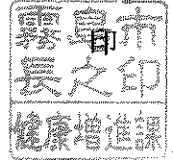 霧島市
印
長之印
健康増進課